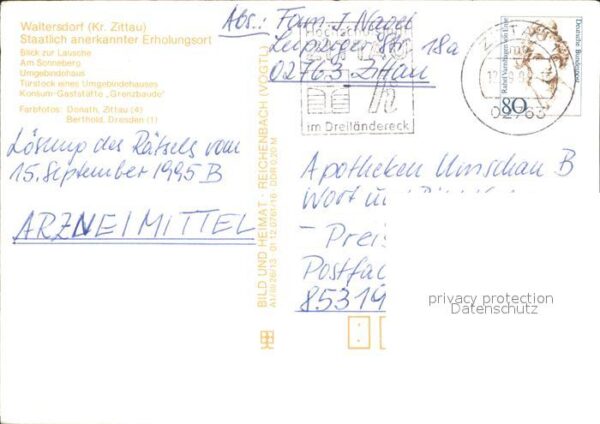 Waltersdorf (Kr. Zittau)
Staatlich anerkannter Erholungsort
Blick zur Lausche
Am Sonneberg
Umgebindehaus
Türstock eines Umgebindehauses
Konsum-Gaststätte „Grenzbaude"
Farbfotos: Donath, Zittau (4)
Berthold, Dresden (1)
Lösung des Rätsels vom
15. September 1995 B
ARZNEIMITTEL
BILD UND HEIMAT · REICHENBACH (VOGTL)
A1/B/26/13 01 12 0761/16 · DDR 0,20 M
Abs.: Fam. J. Nagel
Leipziger Str. 18a
02763 Zittau
im Dreiländereck
ZITTAU
02763
80
Rahel Varnhagen von Ense
Deutsche Bundespost
Apotheken Umschau B
Wort
- Preis
Postfac
85319
privacy protection
Datenschutz